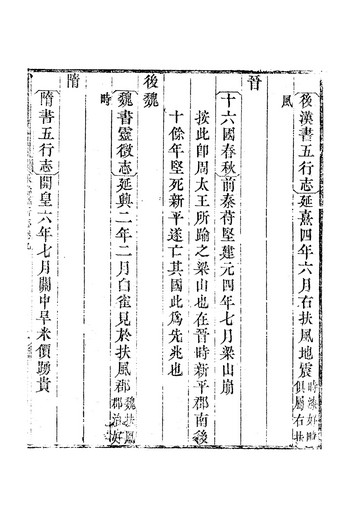 後漢書五行志延熹四年六月右扶風地震時漆好畤俱屬右扶
風
晉
十六國春秋前秦苻堅建元四年七月梁山崩
按此卽周太王所踰之梁山也在晉時新平郡南後
十餘年堅死新平遂亡其國此爲先兆也
後魏
魏書靈徵志延興二年二月白雀見於扶風郡魏扶風郡治好
畤
隋
隋書五行志開皇六年七月關中旱米價踴貴